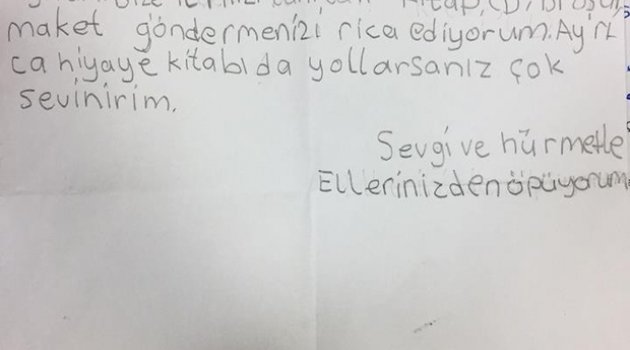 Kitap, CD, broşür,
maket göndermenizi rica ediyorum. Ayrı
ca hiyaye kitabı da yollarsanız çok
sevinirim.
Sevgi ve hürmetle
Ellerinizden öpüyorum